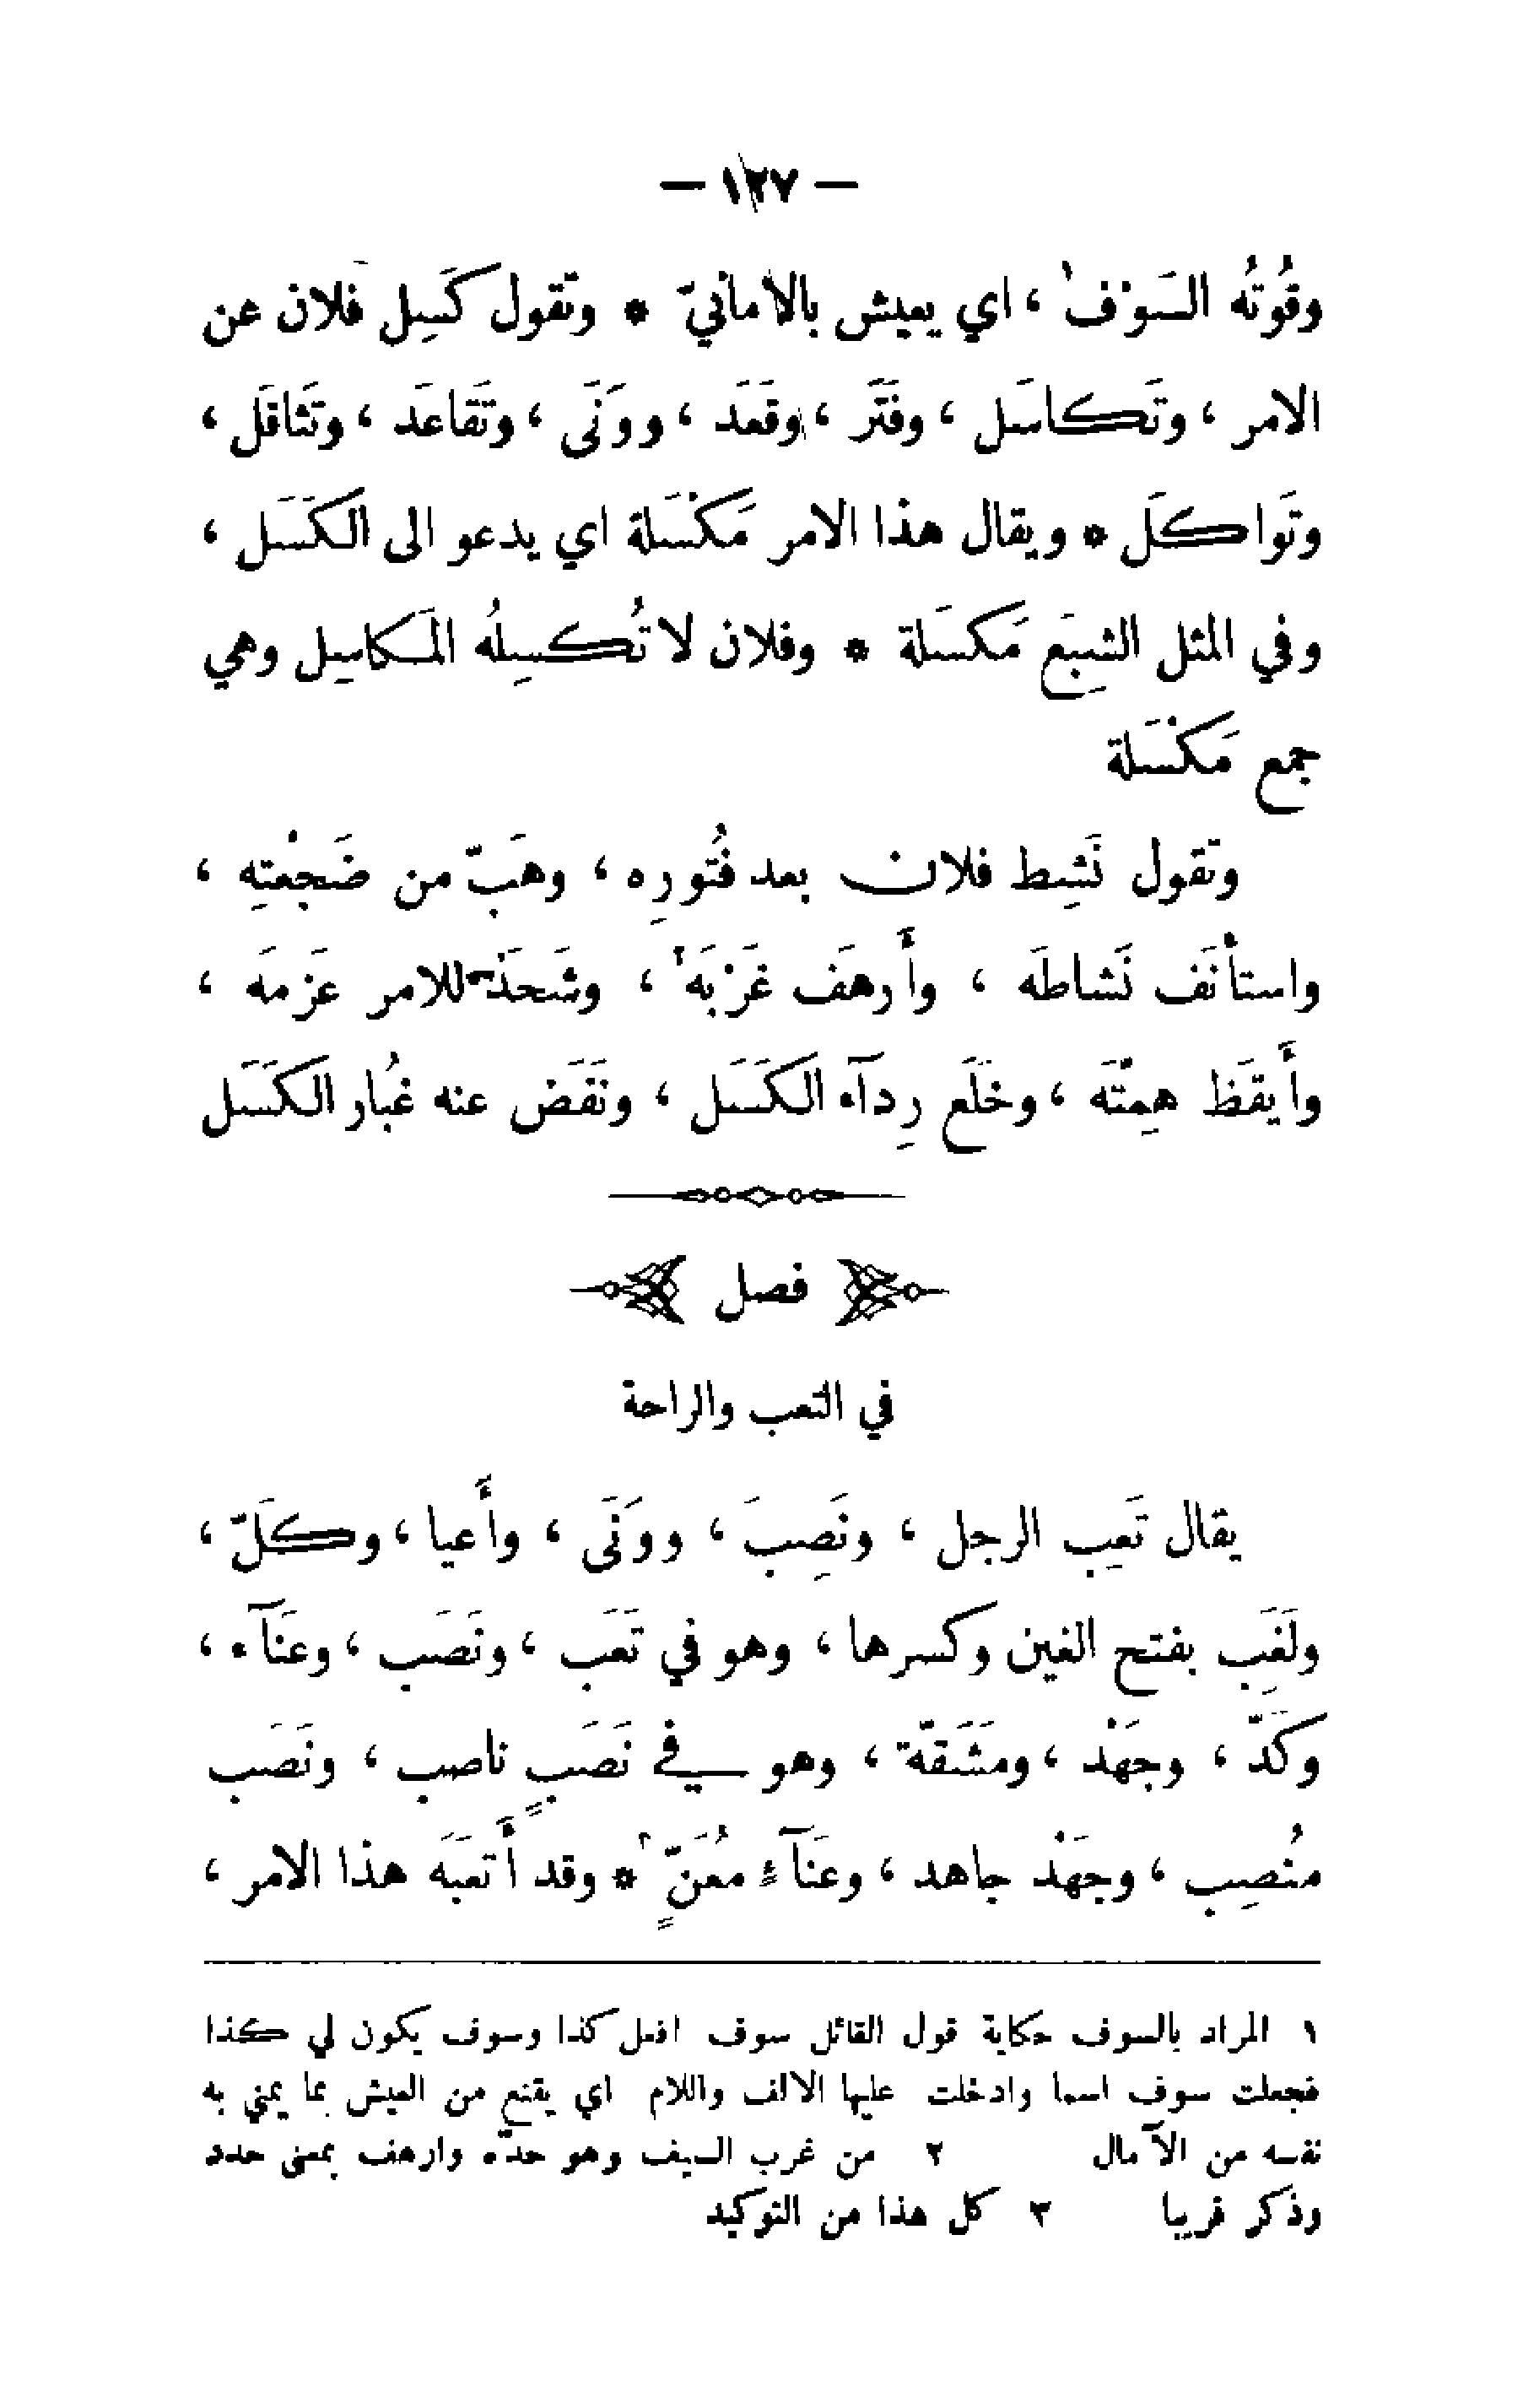 — ١٢٧ —
وقُوتُه السَوْف١ ، اي يعيش بالأمانيّ * وتقول كَسِل فلان عن
الامر ، وتَكاسَل ، وفَتَر ، وقَعَد ، ووَنَى ، وتَقاعَد ، وتَثاقَل ،
وتَواكَل * ويقال هذا الامر مَكْسَلة اي يدعو الى الكَسَل ،
وفي المثل الشِبَع مَكسَلة * وفلان لا تُكسِلُه المَكاسِل وهي
جمع مَكْسَلة
وتقول نَشِط فلان بعد فُتُورِه ، وهَبّ من ضَجْعتِه ،
واستأْنَف نَشاطَه ، وأَرهَف غَرْبَه٢ ، وشَحَذ للامر عَزمَه ،
وأَيقَظ هِمّتَه ، وخَلَع رِدآء الكَسَل ، ونَفَض عنه غُبار الكَسَل
فصل
في التعب والراحة
يقال تَعِب الرجل ، ونَصِبَ ، ووَنَى ، وأَعيا ، وكَلّ ،
ولَغَِب بفتح الغين وكسرها ، وهو في تَعَب ، ونَصَب ، وعَنَآء ،
وكَدّ ، وجَهْد ، ومَشَقّة ، وهو في نَصَبٍ ناصب ، ونَصَب
مُنصِب ، وجَهْد جاهد ، وعَنَآءٍ مُعَنٍّ٣ * وقد أَتعَبَه هذا الامر ،
١ المراد بالسوف حكاية قول القائل سوف افعل كذا وسوف يكون لي كذا
فجعلت سوف اسما وادخلت عليها الالف واللام اي يقنع من العيش بما يمني به
نفسه من الآمال ٢ من غرب السيف وهو حدّه وارهف بمعنى حدد
وذكر قريبا ٣ كل هذا من التوكيد